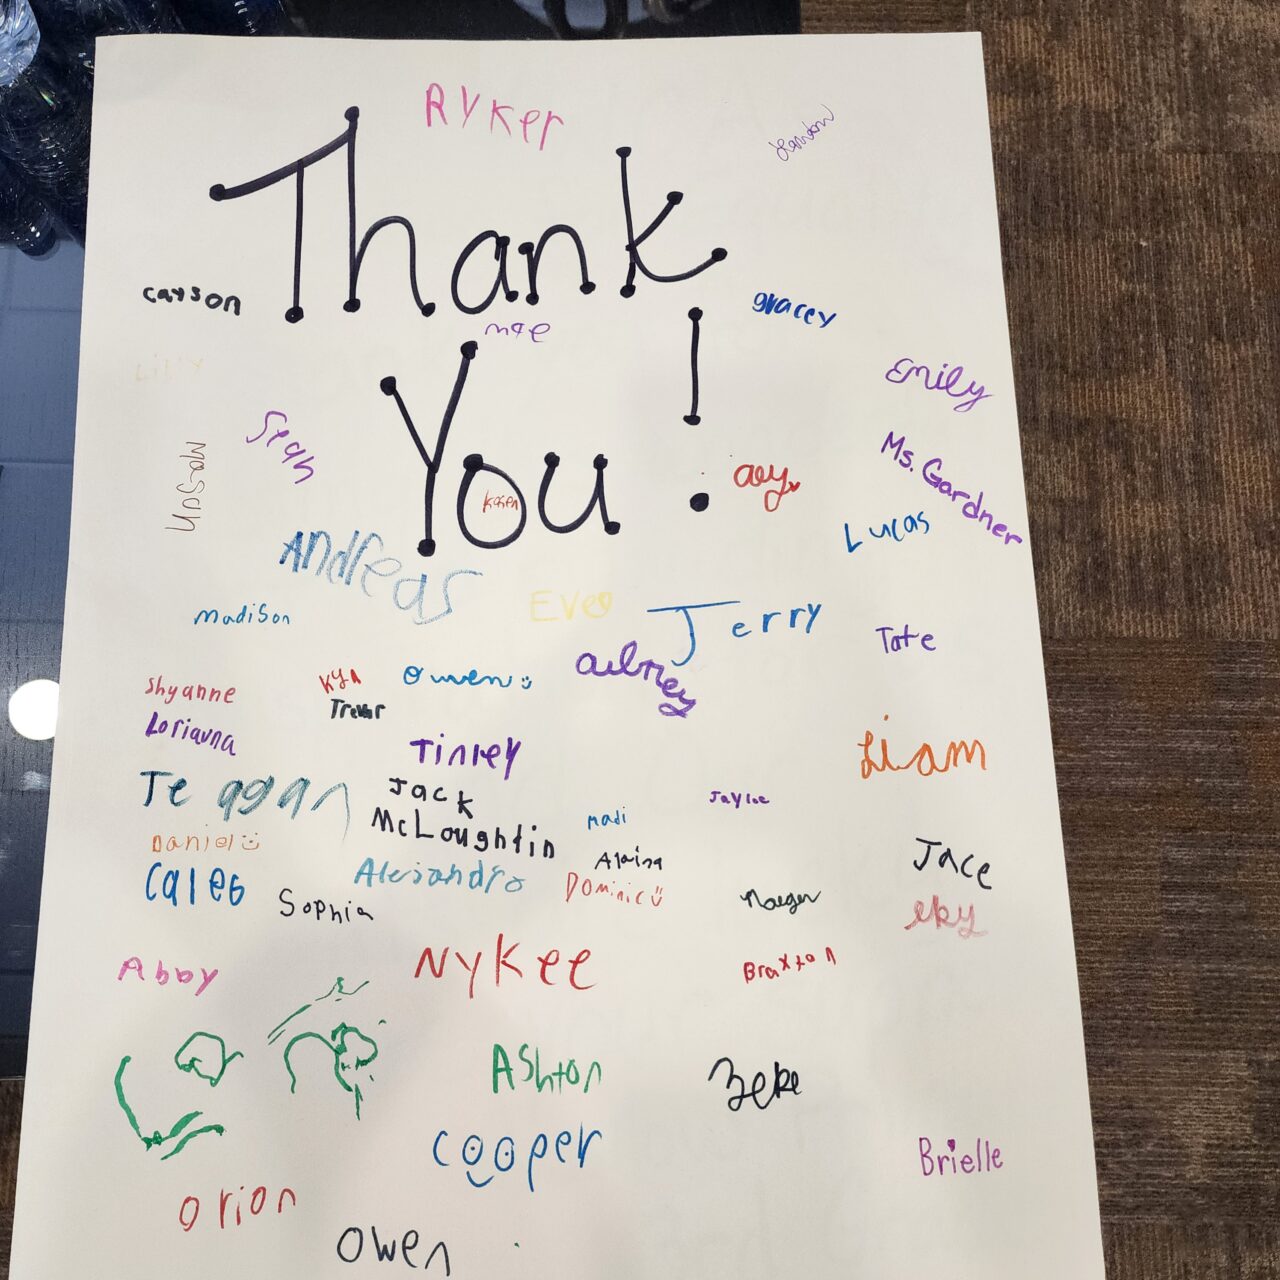 RYKer
Thank
cayson
gracey
mae
You!
Lilly
Emily
Sean
Mason
Ms. Gardner
Karen
Lucas
Andreas
Eve
Jerry
Madison
Tate
aubrey
Shyanne
Kya
Owen
Trevor
Lorianna
Tinley
Liam
Teagan
Jack
McLoughlin
Jayloe
madi
Daniel
Alaina
Jace
Caleb
Alejandro
Dominic
Sophia
eky
Abby
NyKee
Braxton
Ashton
Zeke
cooper
Brielle
orion
Owen